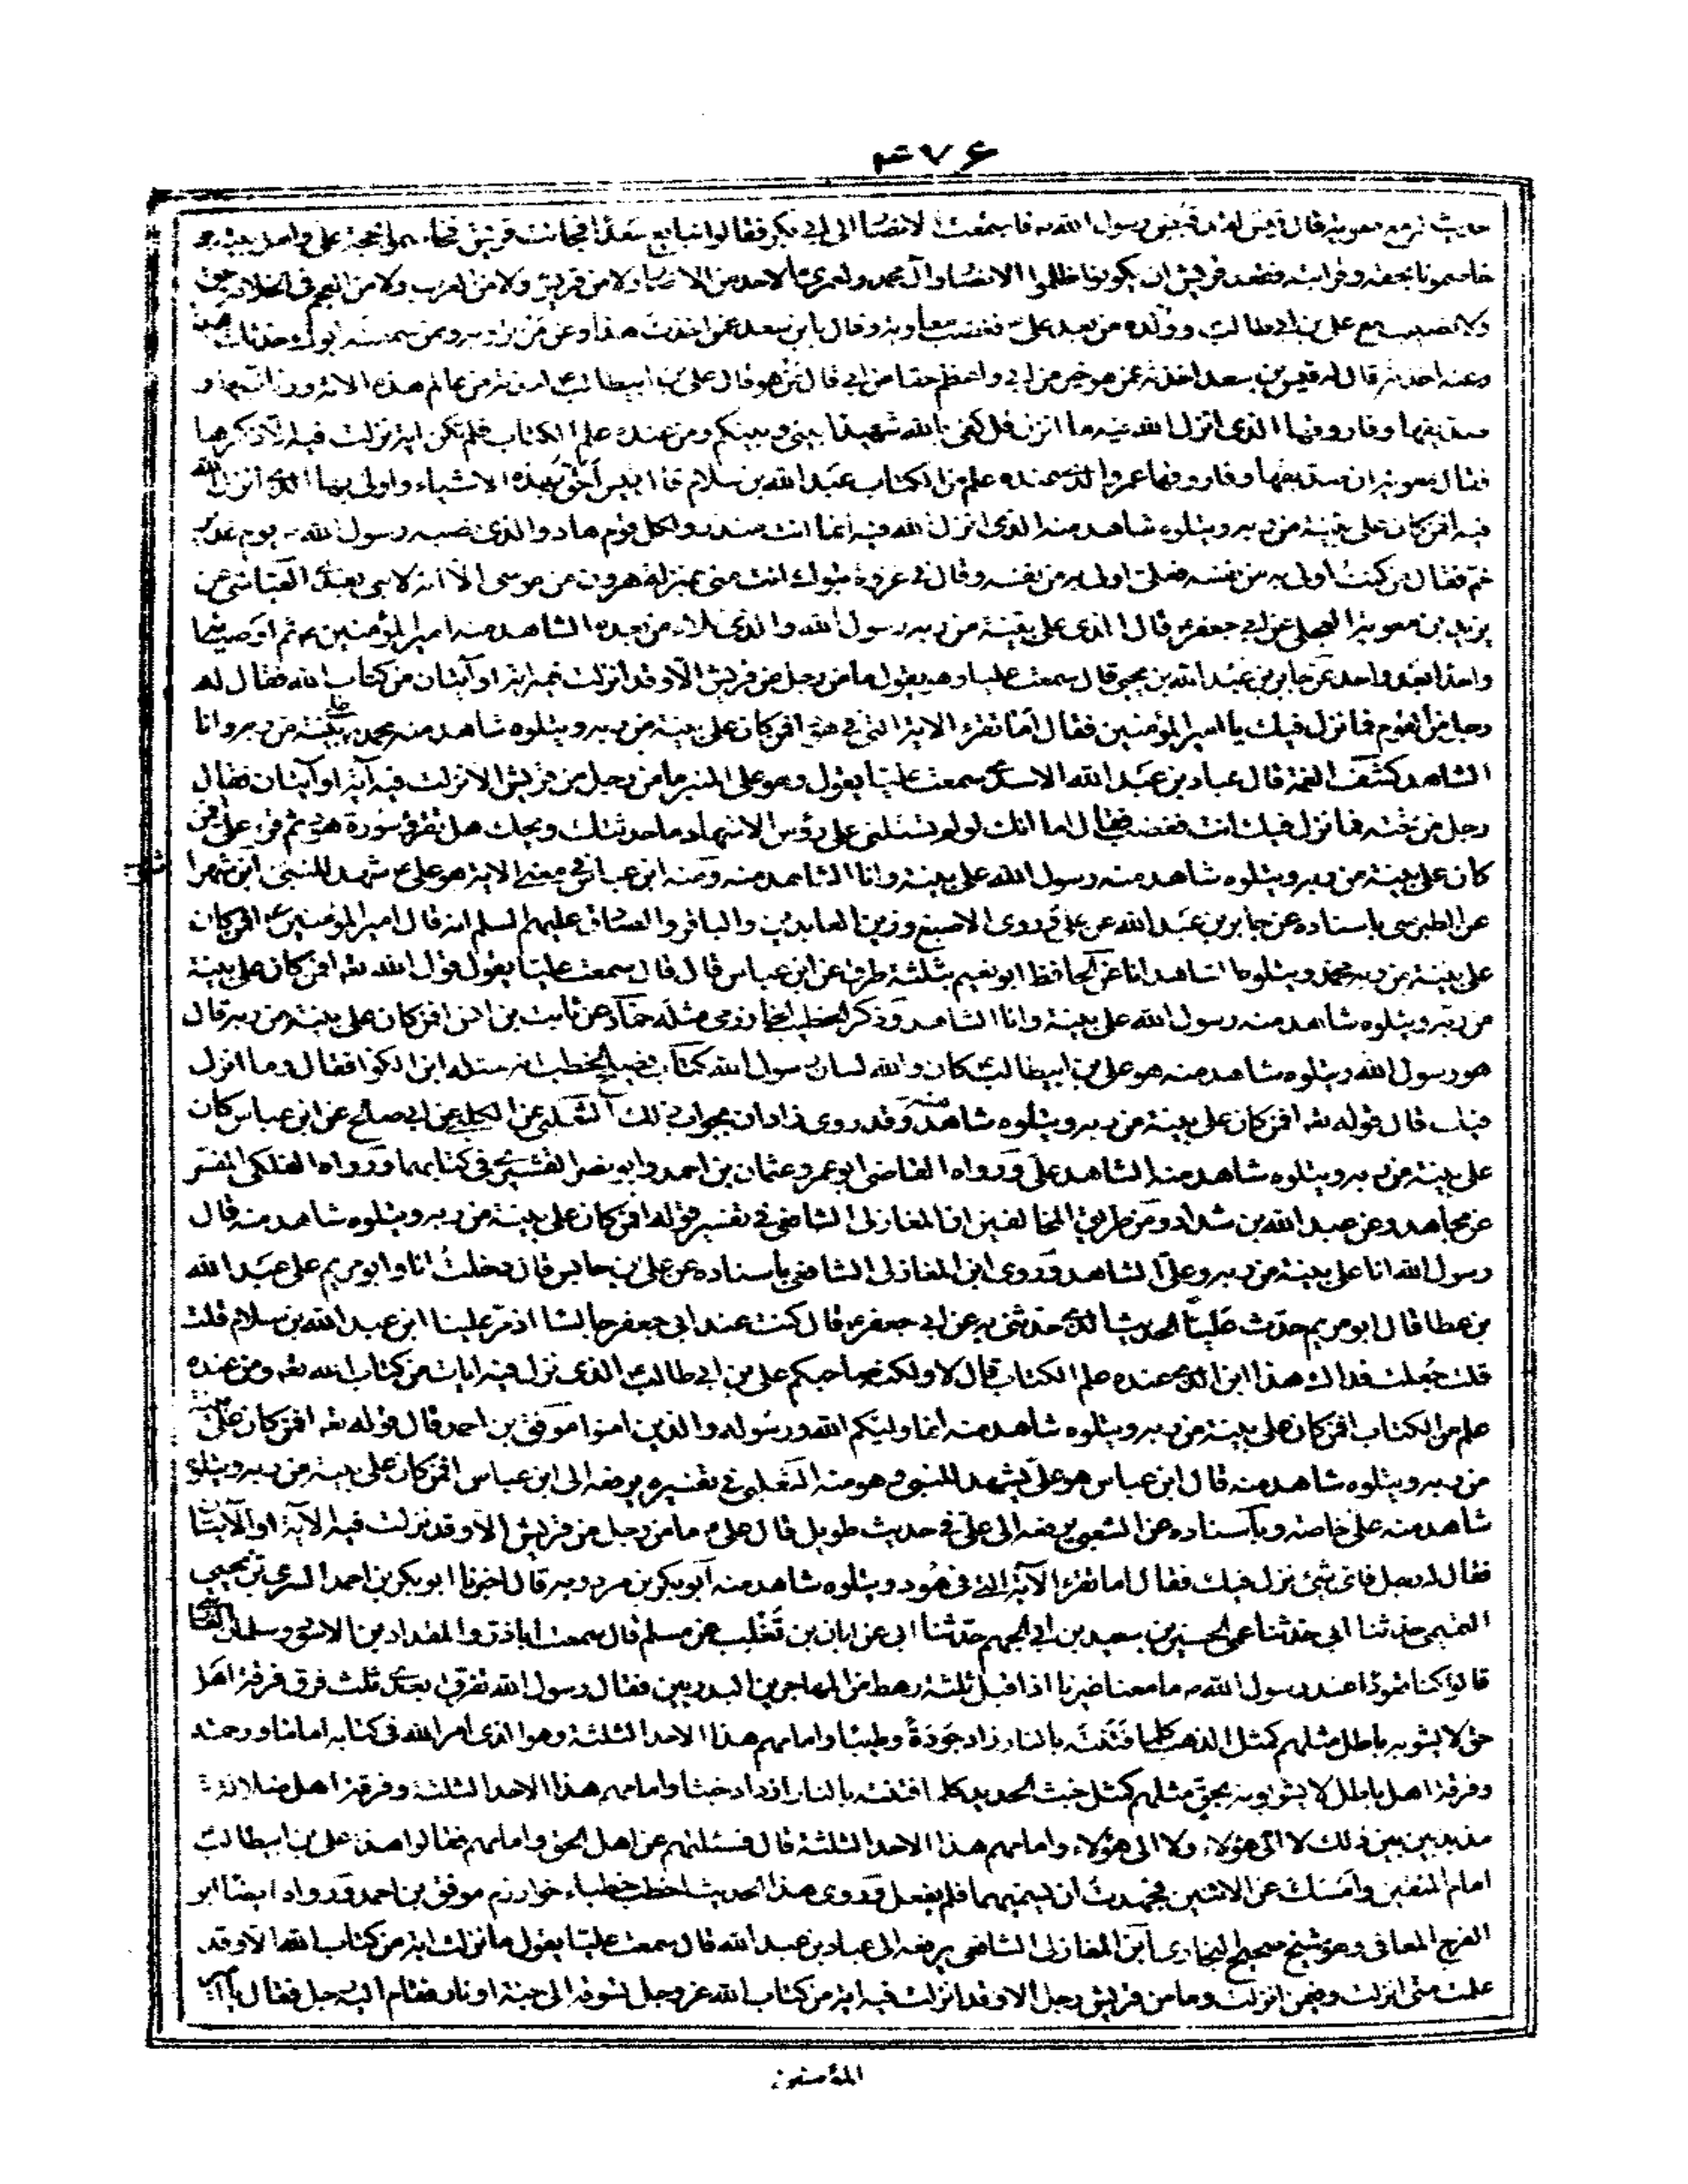 ۴۷۶
حديث له مع معوية قال قيس لقد قبض رسول الله فاجتمعت الانصار الى ابى بكر فقالوا نبايع سعدا فجائت قريش
خاصمونا بحقه وقرابته فقريش ان يكونوا ظلموا الانصار وآل محمد ولعمرى ما لاحد من الانصار ولا من قريش ولا من العرب ولا من العجم فى الخلافة حق
ولا نصيب مع على بن ابى طالب وولده من بعد على فغضب معاوية وقال يا بن سعد عمن اخذت هذا وعمن ترويه وممن سمعته ابوك حدثك
وعنه اخذته قال له قيس بن سعد اخذته عمن هو خير من ابى واعظم حقا من ابى قال من هو قال على بن ابيطالب عالم هذه الامة
صديقها وفاروقها الذى انزل الله فيه ما انزل قل كفى بالله شهيدا بينى وبينكم ومن عنده علم الكتاب فلم تكن اية نزلت فيه الا ذكرها
فقال معوية ان صديقها وفاروقها عمر والذى عنده علم من الكتاب عبد الله بن سلام قال قيس احق بهذه الاشياء واولى بها الذى انزل الله
فيه افمن كان على بينة من ربه ويتلوه شاهد منه الذى انزل الله فيه انما انت منذر ولكل قوم هاد والذى نصبه رسول الله يوم غدير
خم فقال من كنت اولى به من نفسه فعلى اولى به من نفسه وقال فى غزوة تبوك انت منى بمنزلة هرون من موسى الا انه لا نبى بعدى العياشى عن
بريد بن معوية العجلى عن ابى جعفر قال الذى على بينة من ربه رسول الله والذى تلاه من بعده الشاهد منه امير المؤمنين ثم اوصيائه
واحدا بعد واحد عن جابر بن عبد الله بن يحيى قال سمعت عليا وهو يقول ما من رجل من قريش الا وقد انزلت فيه اية او آيتان من كتاب الله فقال له
رجل من القوم فما نزل فيك يا امير المؤمنين فقال اما تقرء الاية التى فى هود افمن كان على بينة من ربه ويتلوه شاهد منه محمد على بينة من ربه وانا
الشاهد كشف الغمة قال عباد بن عبد الله الاسدى سمعت عليا يقول وهو على المنبر ما من رجل من قريش الا نزلت فيه آية او آيتان فقال
رجل من تحته فما نزل فيك انت فغضب فقال اما انك لو لم تسئلنى على رؤس الاشهاد ما حدثتك ويحك هل تقرء سورة هود ثم قرء على افمن
كان على بينة من ربه ويتلوه شاهد منه رسول الله على بينة وانا الشاهد منه وعنه ابن عباس فى معنى الاية هو على شهد للنبى ابن شهر
عن الطبرسى باسناده عن جابر بن عبد الله عن على روى الاصبغ وزين العابدين والباقر والصادق عليهم السلم انه قال امير المؤمنين افمن كان
على بينة من ربه محمد ويتلوه الشاهد انا عن الحافظ ابو نعيم بثلثة طرق عن ابن عباس قال قال سمعت عليا يقول قول الله افمن كان على بينة
من ربه ويتلوه شاهد منه رسول الله على بينة وانا الشاهد وذكر الخطيب الخوارزمى مثله حماد عن ثابت بن انس افمن كان على بينة من ربه قال
هو رسول الله ويتلوه شاهد منه هو على بن ابيطالب كان والله لسان رسول الله كتاب فصيح الخطب انه سئله ابن الكوا فقال وما انزل
فيك قال قوله افمن كان على بينة من ربه ويتلوه شاهد منه وقد روى زاذان بجواب ذلك الثعلبى عن الكلبى عن ابى صالح عن ابن عباس كان
على بينة من ربه ويتلوه شاهد منه الشاهد على ورواه القاضى ابو عمرو عثمان بن احمد وابو نصر القشيرى فى كتابهما ورواه الفلكى المفسر
عن مجاهد وعن عبد الله بن شداد ومن طريق المخالفين المغازلى الشافعى فى تفسير قوله افمن كان على بينة من ربه ويتلوه شاهد منه قال
رسول الله انا على بينة من ربه وعلى الشاهد وروى ابن المغازلى الشافعى باسناده عن على بن حابس قال دخلت انا وابو مريم على عبد الله
بن عطا قال ابو مريم حدث عليا الحديث الذى حدثنى به عن ابى جعفر قال كنت عند ابى جعفر جالسا اذ مر علينا ابن عبد الله بن سلام قلت
قلت جعلت فداك هذا ابن الذى عنده علم الكتاب قال لا ولكنه صاحبكم على بن ابى طالب الذى نزل فيه ايات من كتاب الله ومن عنده
علم من الكتاب افمن كان على بينة من ربه ويتلوه شاهد منه انما وليكم الله ورسوله والذين امنوا موفق بن احمد قال قوله افمن كان على بينة
من ربه ويتلوه شاهد منه قال ابن عباس هو على يشهد للنبى وهو منه الثعلبى فى تفسيره يرفعه الى ابن عباس افمن كان على بينة من ربه ويتلوه
شاهد منه على خاصة وباسناده عن الشعبى يرفعه الى على فى حديث طويل قال على ما من رجل من قريش الا وقد نزلت فيه الآية او الآيتان
فقال له رجل فاى شئ نزل فيك فقال اما تقرء الآية التى فى هود ويتلوه شاهد منه ابو بكر بن مردويه قال اخبرنا ابو بكر بن احمد السرى بن يحيى
التميمى حدثنا ابى حدثنا عمى الحسين بن سعيد بن ابى الجهم حدثنا ابى عن ابان بن تغلب عن مسلم قال سمعت اباذر والمقداد بن الاسود وسلمان
قالوا كنا قعودا عند رسول الله ما معنا غيرنا اذا اقبل ثلثة رهط من المهاجرين البدريين فقال رسول الله تفترق بعدى ثلث فرق فرقة اهل
حق لا يشوبه باطل مثلهم كمثل الذهب كلما فتنته بالنار زاد جودة وطيبا وامامهم هذا لاحد الثلثة وهو الذى امر الله فى كتابه اماما ورحمة
وفرقة اهل باطل لا يشوبونه بحق مثلهم كمثل خبث الحديد كلما فتنته بالنار ازداد خبثا وامامهم هذا لاحد الثلثة وفرقة اهل ضلالة
مذبذبين بين ذلك لا الى هؤلاء ولا الى هؤلاء وامامهم هذا لاحد الثلثة قال فسئلتهم عن اهل الحق وامامهم فقالوا هذا على بن ابيطالب
امام المتقين وامسك عن الاثنين فجهدت ان يسميهما فلم يفعل وروى هذا الحديث اخطب خطباء خوارزم موفق بن احمد ورواه ايضا ابو
الفرج المعافى وهو شيخ صحيح البخارى ابن المغازلى الشافعى يرفعه الى عباد بن عبد الله قال سمعت عليا يقول ما نزلت اية من كتاب الله الا وقد
علمت متى انزلت وفيمن انزلت وما من قريش رجل الا وقد انزلت فيه اية من كتاب الله عز وجل تسوقه الى جنة او نار فقام اليه رجل فقال يا امير
المؤمنين